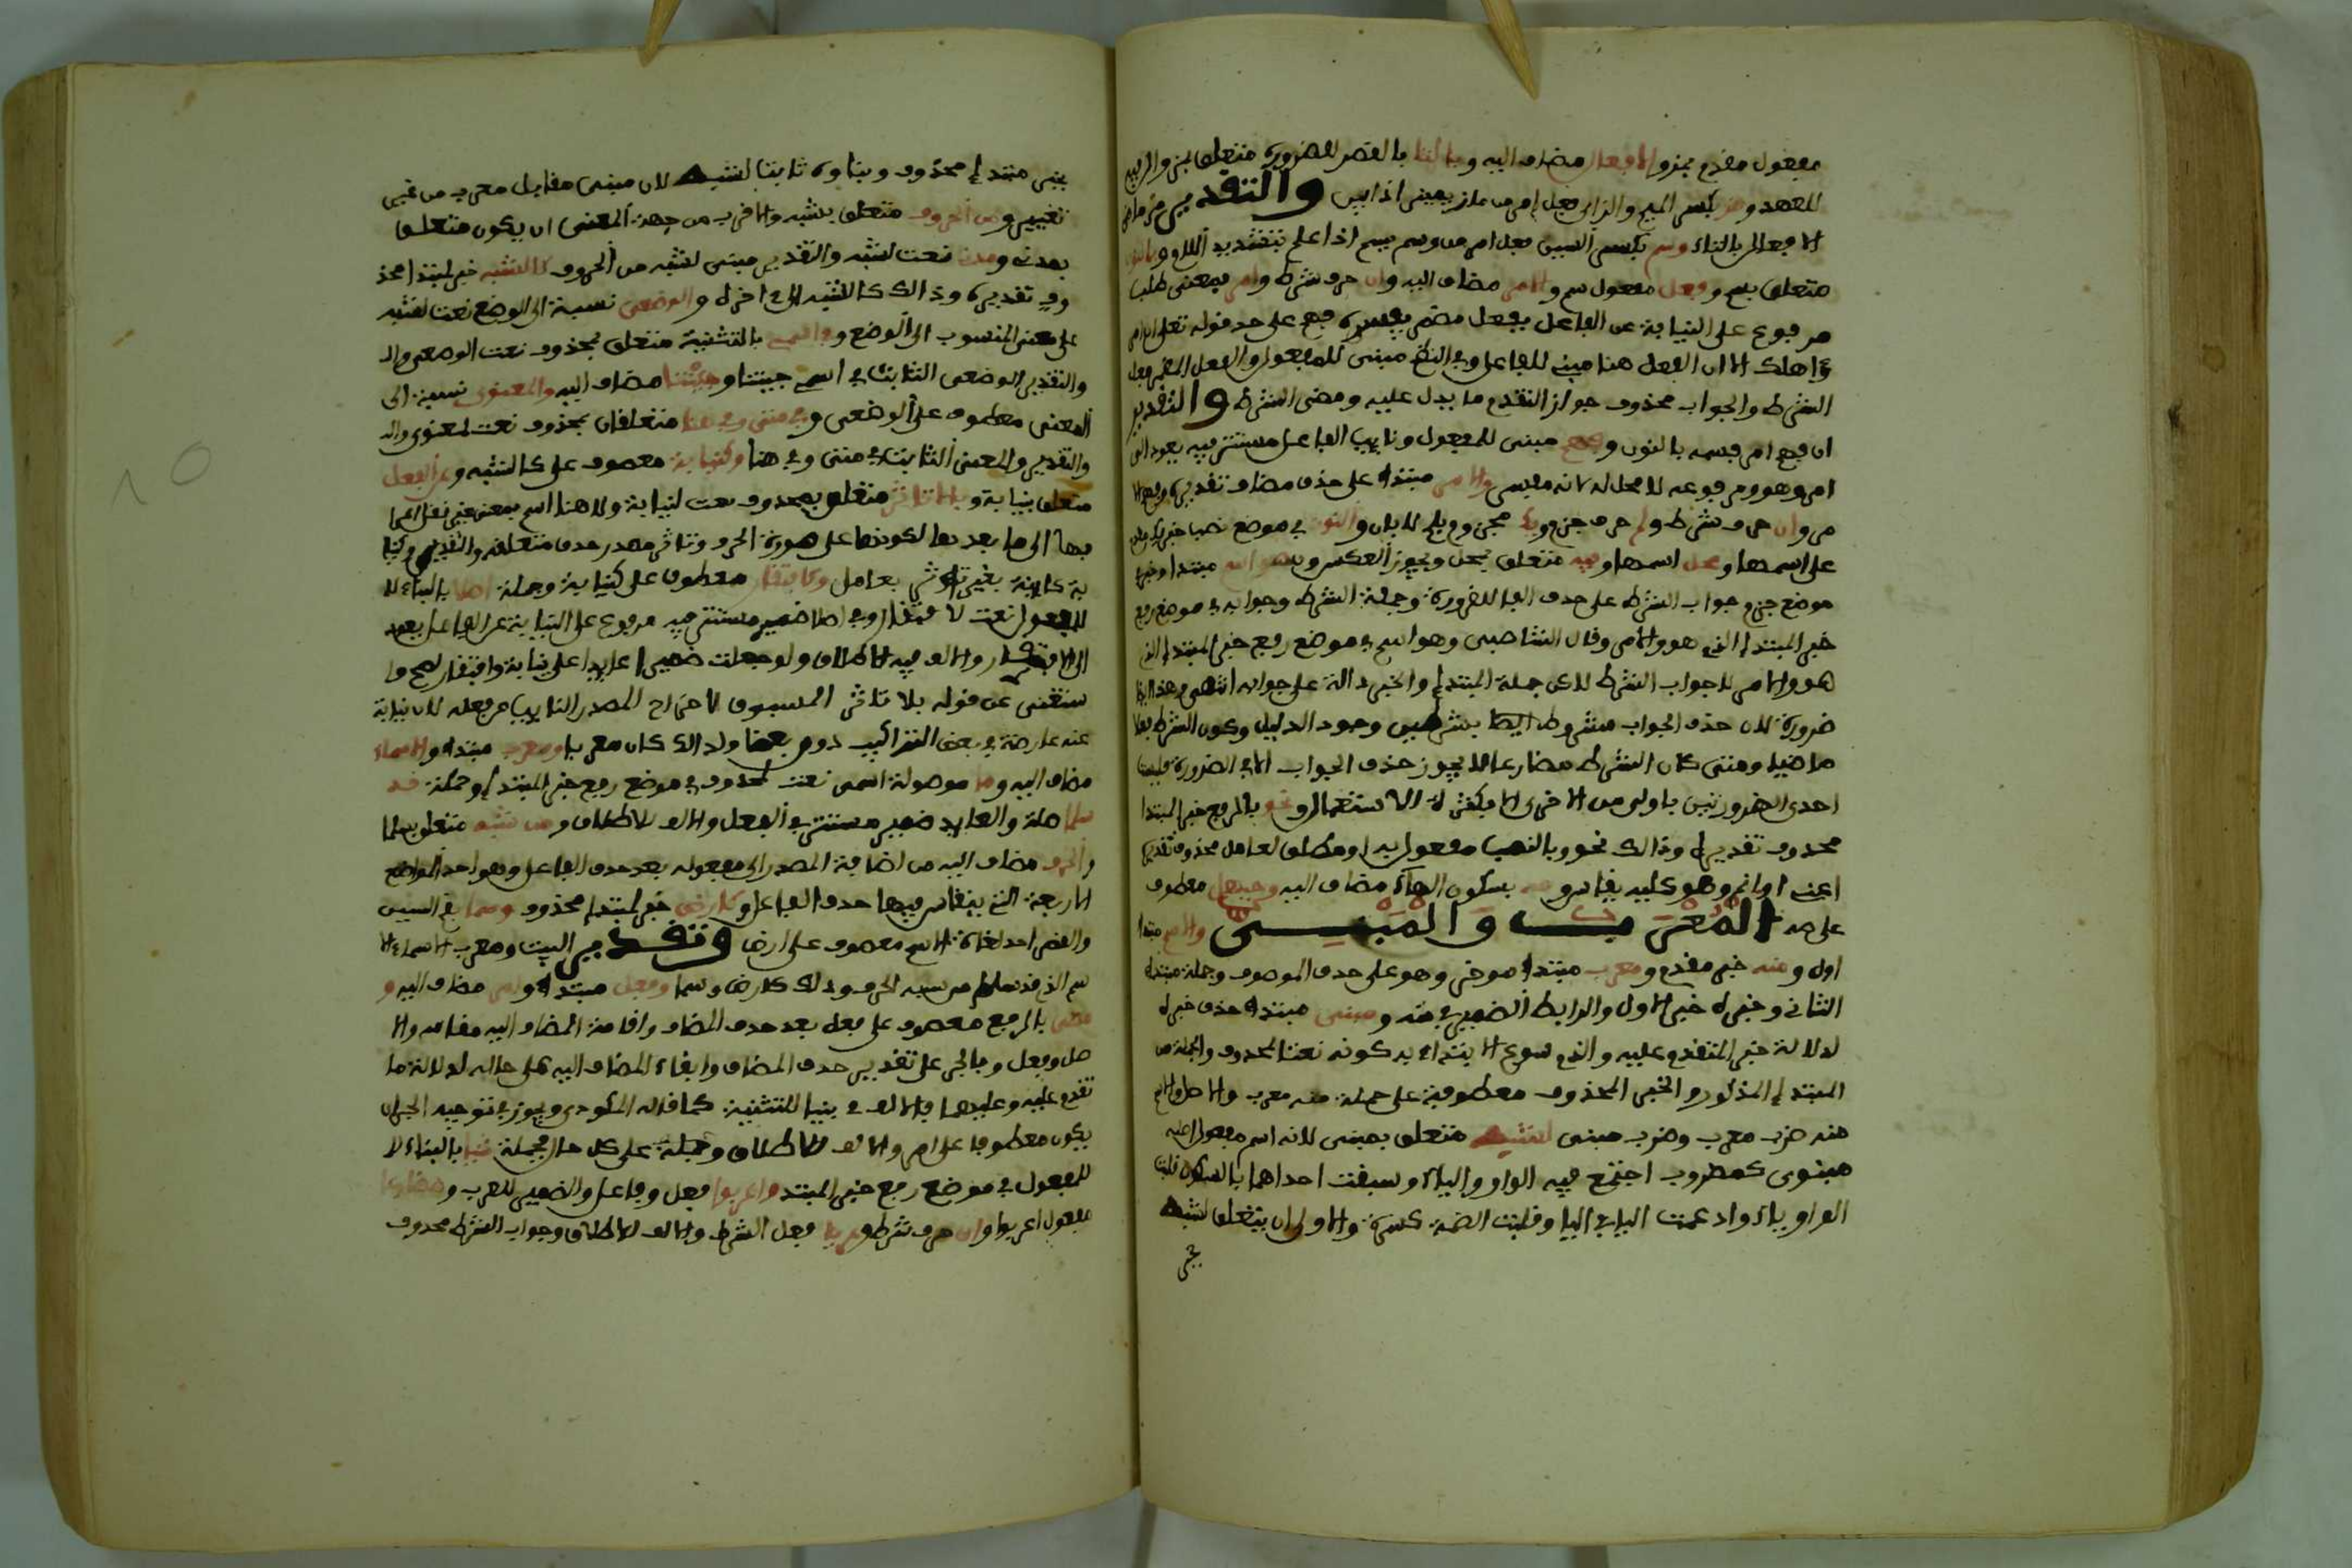 مفعول مقدم بمز والافعال مضاف اليه وبالتا بالقصر للضرورة متعلق بمز والـ
للعهد ومز بكسر الميم والزاى فعل امر من ماز يميز اذا ميز والتقدير مز ماضى
الافعال بالتاء وسم بكسر السين فعل امر من وسم يسم اذا علم بتشديد اللام وبالنون
متعلق بسم وفعل مفعول سم والامر مضاف اليه وان حرف شرط وامر بمعنى طلب
مرفوع على النيابة عن الفاعل بفعل مضمر يفسره فهم على حد قوله تعلى ان امر
ؤا هلك الا ان الفعل هنا مبنى للفاعل وفى النظم مبنى للمفعول والفعل المضمر فعل
الشرط والجواب محذوف جواز التقدم ما يدل عليه ومضى الشرط والتقدير
ان فهم امر فسمه بالنون وفهم مبنى للمفعول ونايب الفاعل مستتر فيه يعود الى
امر وهو ومرفوعه لا محل له لانه مفسر والامر مبتدا على حذف مضاف تقديره
مر وان حرف شرط ولم حرف جزم ويك مجزوم بلم لا بان والنون فى موضع نصب خبر يك مقدم
على اسمها ومحل اسمها وفيه متعلق بمحل ويجوز العكس وهو اسم مبتدا وخبر
موضع جزم جواب الشرط على حذف الفا للضرورة وجملة الشرط وجوابه فى موضع رفع
خبر المبتدا الذى هو والامر وقال الشاطبى وهو اسم فى موضع رفع خبر المبتدا الذى
هو والامر لا جواب الشرط لاكن جملة المبتدا والخبر دالة على جوابه انتهى وهذا ايضا
ضرورة لان حذف الجواب مشروط ايضا بشرطين وجود الدليل وكون الشرط فعلا
ماضيا ومتى كان الشرط مضارعا لا يجوز حذف الجواب الا فى الضرورة فليست
احدى الضرورتين باولى من الاخرى الا بكثرة الاستعمال ونحو بالرفع خبر المبتدا
محذوف تقديره وذالك نحو وبالنصب مفعول به او مطلق لعامل محذوف تقديره
اعنى او انحو وهو كليه يقاس وصه بسكون الهاء مضاف اليه وحيهل معطوف
على صه المعرب والمبنى والاسم مبتدا
اول ومنه خبر مقدم ومعرب مبتدا موخر وهو على حذف الموصوف وجملة مبتدا
الثانى وخبره خبر الاول والرابط الضمير فى منه ومبنى مبتدا حذف خبره
لدلالة خبر المتقدم عليه والذى سوغ الابتداء به كونه نعتا لمحذوف والجملة من
المبتدا المذكور والخبر المحذوف معطوفة على جملة منه معرب والاصل والاسم
منه ضرب معرب وضرب مبنى لشبه متعلق بمبنى لانه اسم مفعول اصله
مبنوى كمضروب اجتمع فيه الواو والياء وسبقت احداهما بالسكون قلبت
الواو ياء وادغمت اليا فى اليا وقلبت الضمة كسرة والاولى ان يتعلق لشبه
بخبر
بخبر مبتدا محذوف وبناوه ثابتا لشبه لان مبنى مقابل معرب من غير
تغيير ومن الحروف متعلق بشبه والاقرب من جهة المعنى ان يكون متعلقا
بمدن ومدن نعت لشبه والتقدير مبنى لشبه من الحروف كالشبه خبر لمبتدا محذ
وف تقديره وذالك كالشبه الى اخره والوضعى نسبة الى الوضع نعت لشبه
على معنى المنسوب الى الوضع وفى اسمى بالتثنية متعلق بمحذوف نعت الوضعى والـ
والتقدير الوضعى الثابت فى اسمى جيتنا وجئتنا مضاف اليه والمعنوى نسبة الى
المعنى معطوف على الوضعى وفى متى وفى هنا متعلقان بمحذوف نعت لمعنوى والـ
والتقدير والمعنى الثابت فى متى وفى هنا وكنيابة معطوف على كالشبه وعن الفعل
متعلق بنيابة وبلا تاثر متعلق بمحذوف نعت لنيابة ولا هنا اسم بمعنى غير نقل اعرا
بها الى ما بعدها لكونها على صورة الحرف وتاثر مصدر حذف متعلقه والتقدير وكنيا
بة كاينة بغير تاثر بعامل وكافتقار معطوف على كنيابة وجملة اصلا بالبناء لا
للمفعول نعت لافتقار وفى اصلا ضمير مستتر فيه مرفوع على النيابة عن الفاعل يعود
الى الافتقار والالف فيه للاطلاق ولو جعلت ضميرا عايدا على نيابة وافتقار لصح وا
ستغنى عن قوله بلا تاثر المسبوق لاخراج المصدر النايب عن فعله لان نيابة
عنه عارضة فى بعض التراكيب دون بعض ولذالك كان معربا ومعرب مبتدا والاسماء
مضاف اليه وما موصولة اسمى نعت لمحذوف فى موضع رفع خبر المبتدا وجملة قد
سلما صلة والعايد ضمير مستتر فى الفعل والالف للاطلاق ومن شبه متعلق بسلما
والحرف مضاف اليه من اضافة المصدر الى مفعوله بعد حذف الفاعل وهو احد المواضع
الاربعة التى ينقاس فيها حذف الفاعل وكارض خبر لمبتدا محذوف وسما بفتح السين
والقصر احد لغات الاسم معطوف على ارض وتقدير البيت ومعرب الاسماء الا
سم الذى قد سلم من شبه الحرف وذلك كارض وسما وفعل مبتدا وامر مضاف اليه و
مضى بالرفع معطوف على فعل بعد حذف المضاف واقامة المضاف اليه مقامه والا
صل وفعل وبالجر على تقدير حذف المضاف وابقاء المضاف اليه على حاله لدلالة ما
تقدم عليه وعليهما فالالف فى بنيا للتثنية كما قاله المكودى ويجوز فى توجيه الجر ان
يكون معطوفا على امر والالف للاطلاق وجملة على كل حال فجملة بنيا بالبناء لا
للمفعول فى موضع رفع خبر المبتدا واعربوا فعل وفاعل والضمير للعرب ومضارعا
مفعول اعربوا وان حرف شرط وعريا فعل الشرط والالف للاطلاق وجواب الشرط محذوف